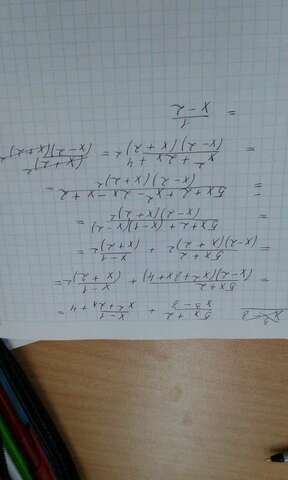 (5x+2)/(x³-8) + (x-1)/(x²+2x+4) =
= (5x+2)/((x-2)(x²+2x+4)) + (x-1)/(x+2)² =
= (5x+2)/((x-2)(x+2)²) + (x-1)/(x+2)² =
= (5x+2+(x-1)(x-2))/((x-2)(x+2)²) =
= (5x+2+x²-2x-x+2)/((x-2)(x+2)²) =
= (x²+2x+4)/((x-2)(x+2)²) = (x+2)²/((x-2)(x+2)²)
= 1/(x-2)